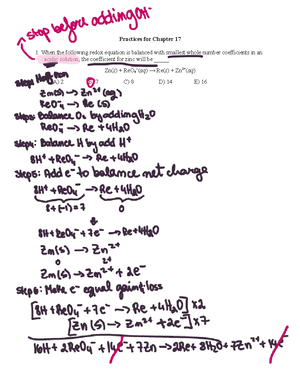 stop before adding OH-
Practices for Chapter 17
1. When the following redox equation is balanced with smallest whole number coefficients in an
acidic solution, the coefficient for zinc will be
Zn(s) + ReO₄⁻(aq) → Re(s) + Zn²⁺(aq)
2 B) 7 C) 8 D) 14 E) 16
Half rxn
Zn(s) → Zn²⁺(aq)
ReO₄⁻ → Re(s)
Step: Balance O, by adding H₂O
ReO₄⁻ → Re + 4H₂O
Step: Balance H by add H⁺
8H⁺ + ReO₄⁻ → Re + 4H₂O
Step5: Add e⁻ to balance net charge
8H⁺ + ReO₄⁻ → Re + 4H₂O
8+(-1)=7 0
8H + ReO₄⁻ + 7e⁻ → Re + 4H₂O
Zn(s) → Zn²⁺
0 2+
Zn(s) → Zn²⁺ + 2e⁻
Step 6: Make e⁻ equal gain + loss
[8H + ReO₄⁻ + 7e⁻ → Re + 4H₂O] x2
[Zn(s) → Zn²⁺ + 2e⁻] x7
16H + 2ReO₄⁻ + 14e⁻ + 7Zn → 2Re + 8H₂O + 7Zn²⁺ + 14e⁻